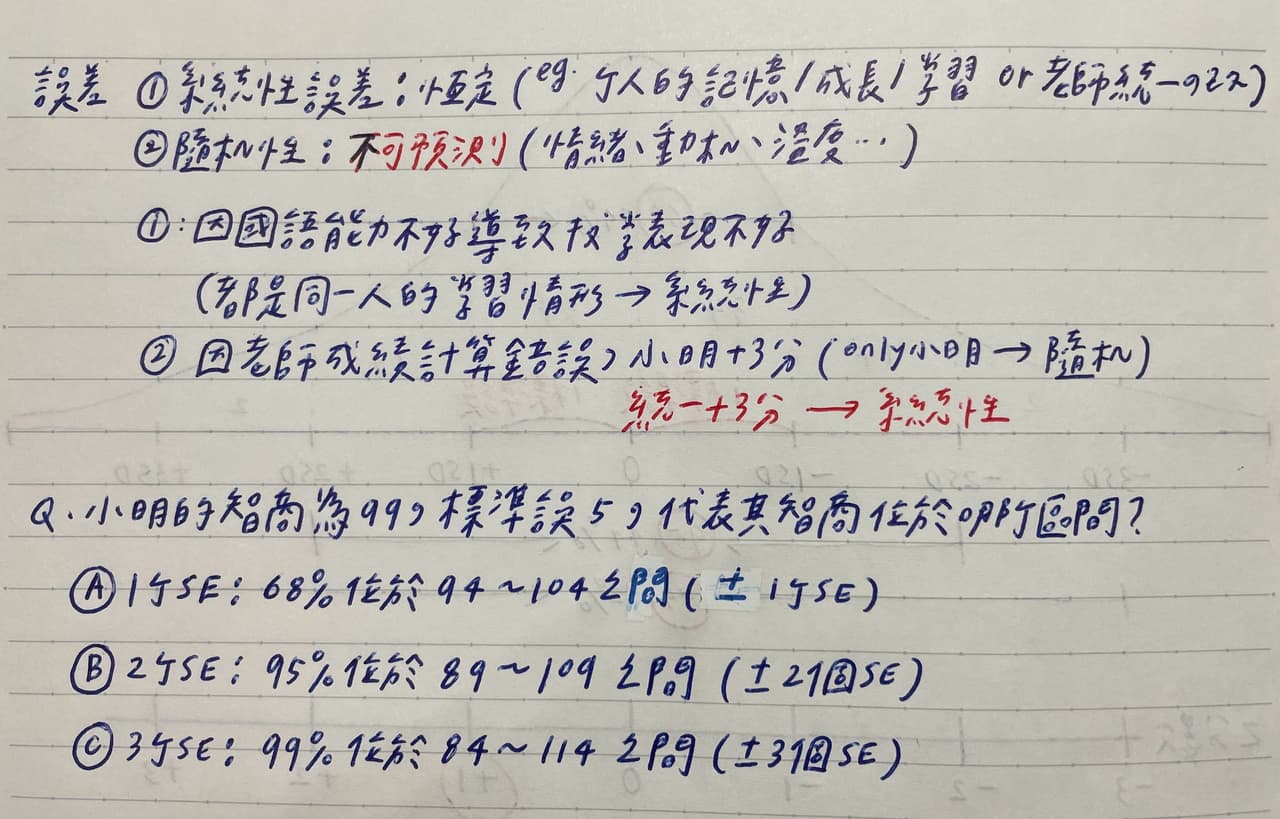 誤差 ① 系統性誤差：恒定 (eg. 个人的記憶/成長/學習 or 老師統一ㄉㄛㄡ)
② 隨机性：不可預測 (情緒、動机、溫度…)
①：因國語能力不好導致数學表現不好
(都是同一人的學習情形 → 系統性)
② 因老師成績計算錯誤，小明+3分 (only小明 → 隨机)
統一+3分 → 系統性
Q. 小明的智商為99，標準誤5，代表其智商位於哪區間？
Ⓐ 1个SE：68%位於94～104之間 (± 1个SE)
Ⓑ 2个SE：95%位於 89～109 之間 (±2個SE)
Ⓒ 3个SE：99%位於 84～114 之間 (±3個SE)
-3SD -2SD -1SD 0 +1SD +2SD +3SD
-3 -2 -1 0 +1 +2 +3